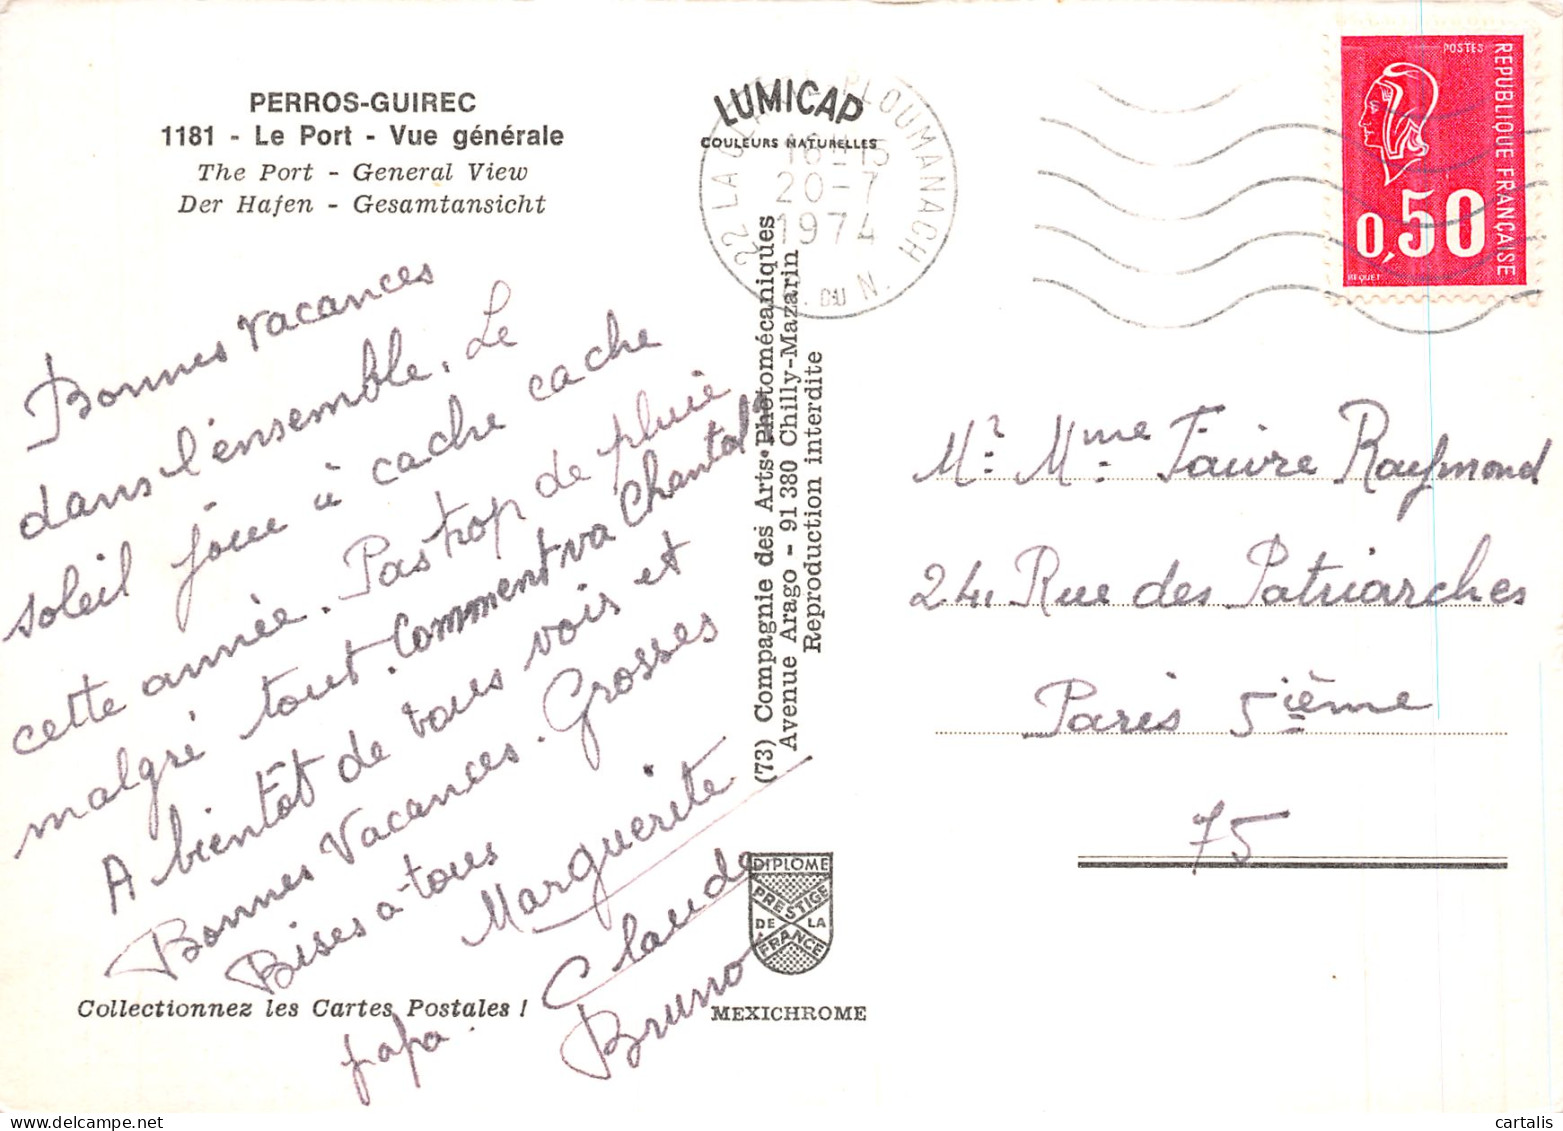 PERROS-GUIREC
1181 - Le Port - Vue générale
The Port - General View
Der Hafen - Gesamtansicht
Bonnes vacances
dans l'ensemble. Le
soleil joue à cache cache
cette année. Pas trop de pluie
malgré tout. Comment va Chantal
A bientôt de vous voir et
Bonnes Vacances. Grosses
Bises à tous
Marguerite
papa. Claude
Bruno
Collectionnez les Cartes Postales !
LUMICAP
COULEURS NATURELLES
22 LA CLARTE PLOUMANACH
16H15
20-7
1974
C. DU N.
(73) Compagnie des Arts Photomécaniques
Avenue Arago - 91 380 Chilly-Mazarin
Reproduction interdite
DIPLOME
PRESTIGE
DE LA
FRANCE
MEXICHROME
POSTES
REPUBLIQUE FRANÇAISE
0,50
BEQUET
Mr. Mme Faivre Raymond
24, Rue des Patriarches
Paris 5ième
75
cartalis